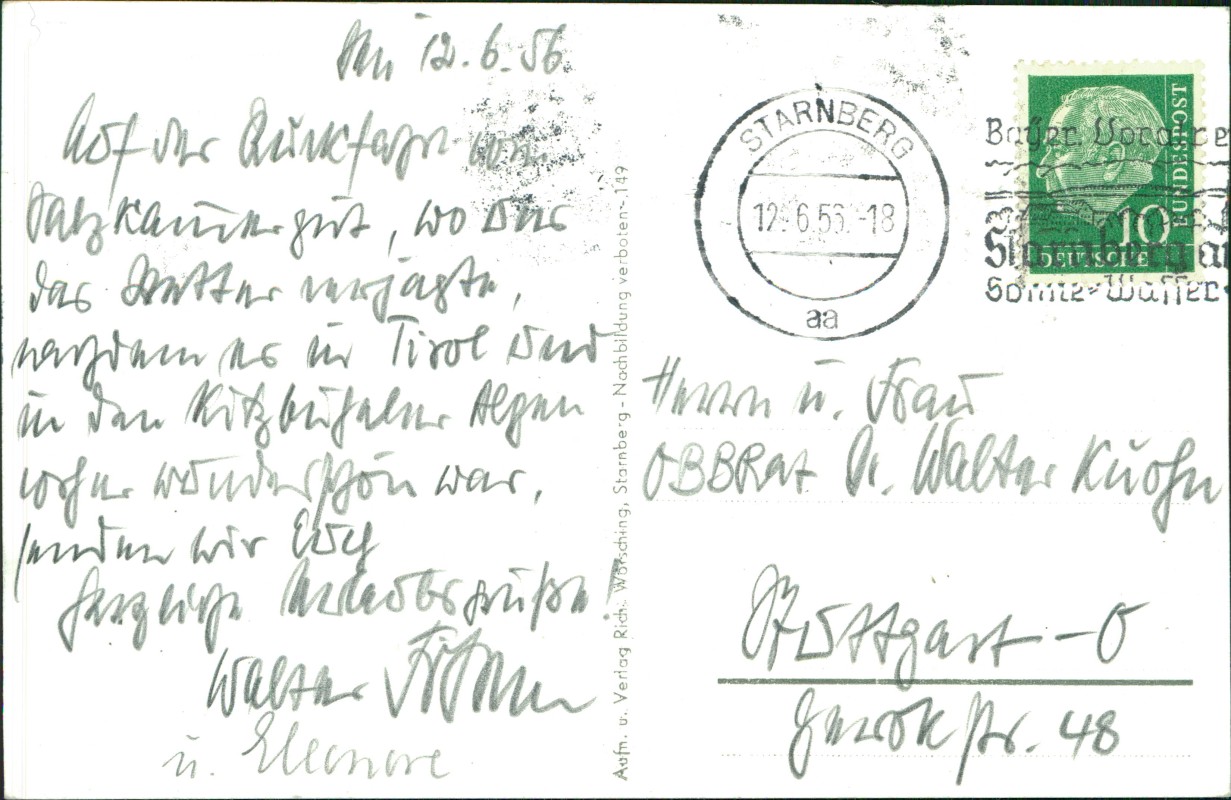 den 12.6.56.
Auf der Rückfahrt vom
Salzkammergut, wo uns
das Wetter verjagte,
nachdem es in Tirol und
in den Kitzbüheler Alpen
vorher wunderschön war,
senden wir Euch
herzliche Urlaubsgrüße!
Walter
u. Eleonore
Aufn. u. Verlag Rich. Wörsching, Starnberg - Nachbildung verboten - 149
STARNBERG
12.-6.56.-18
aa
Bayer. Voralpe
Starnberg a
Sonne-Wasser
10
DEUTSCHE
BUNDESPOST
Herrn u. Frau
OBBRat Dr. Walter Kuohn
Stuttgart-O
Gerokstr. 48